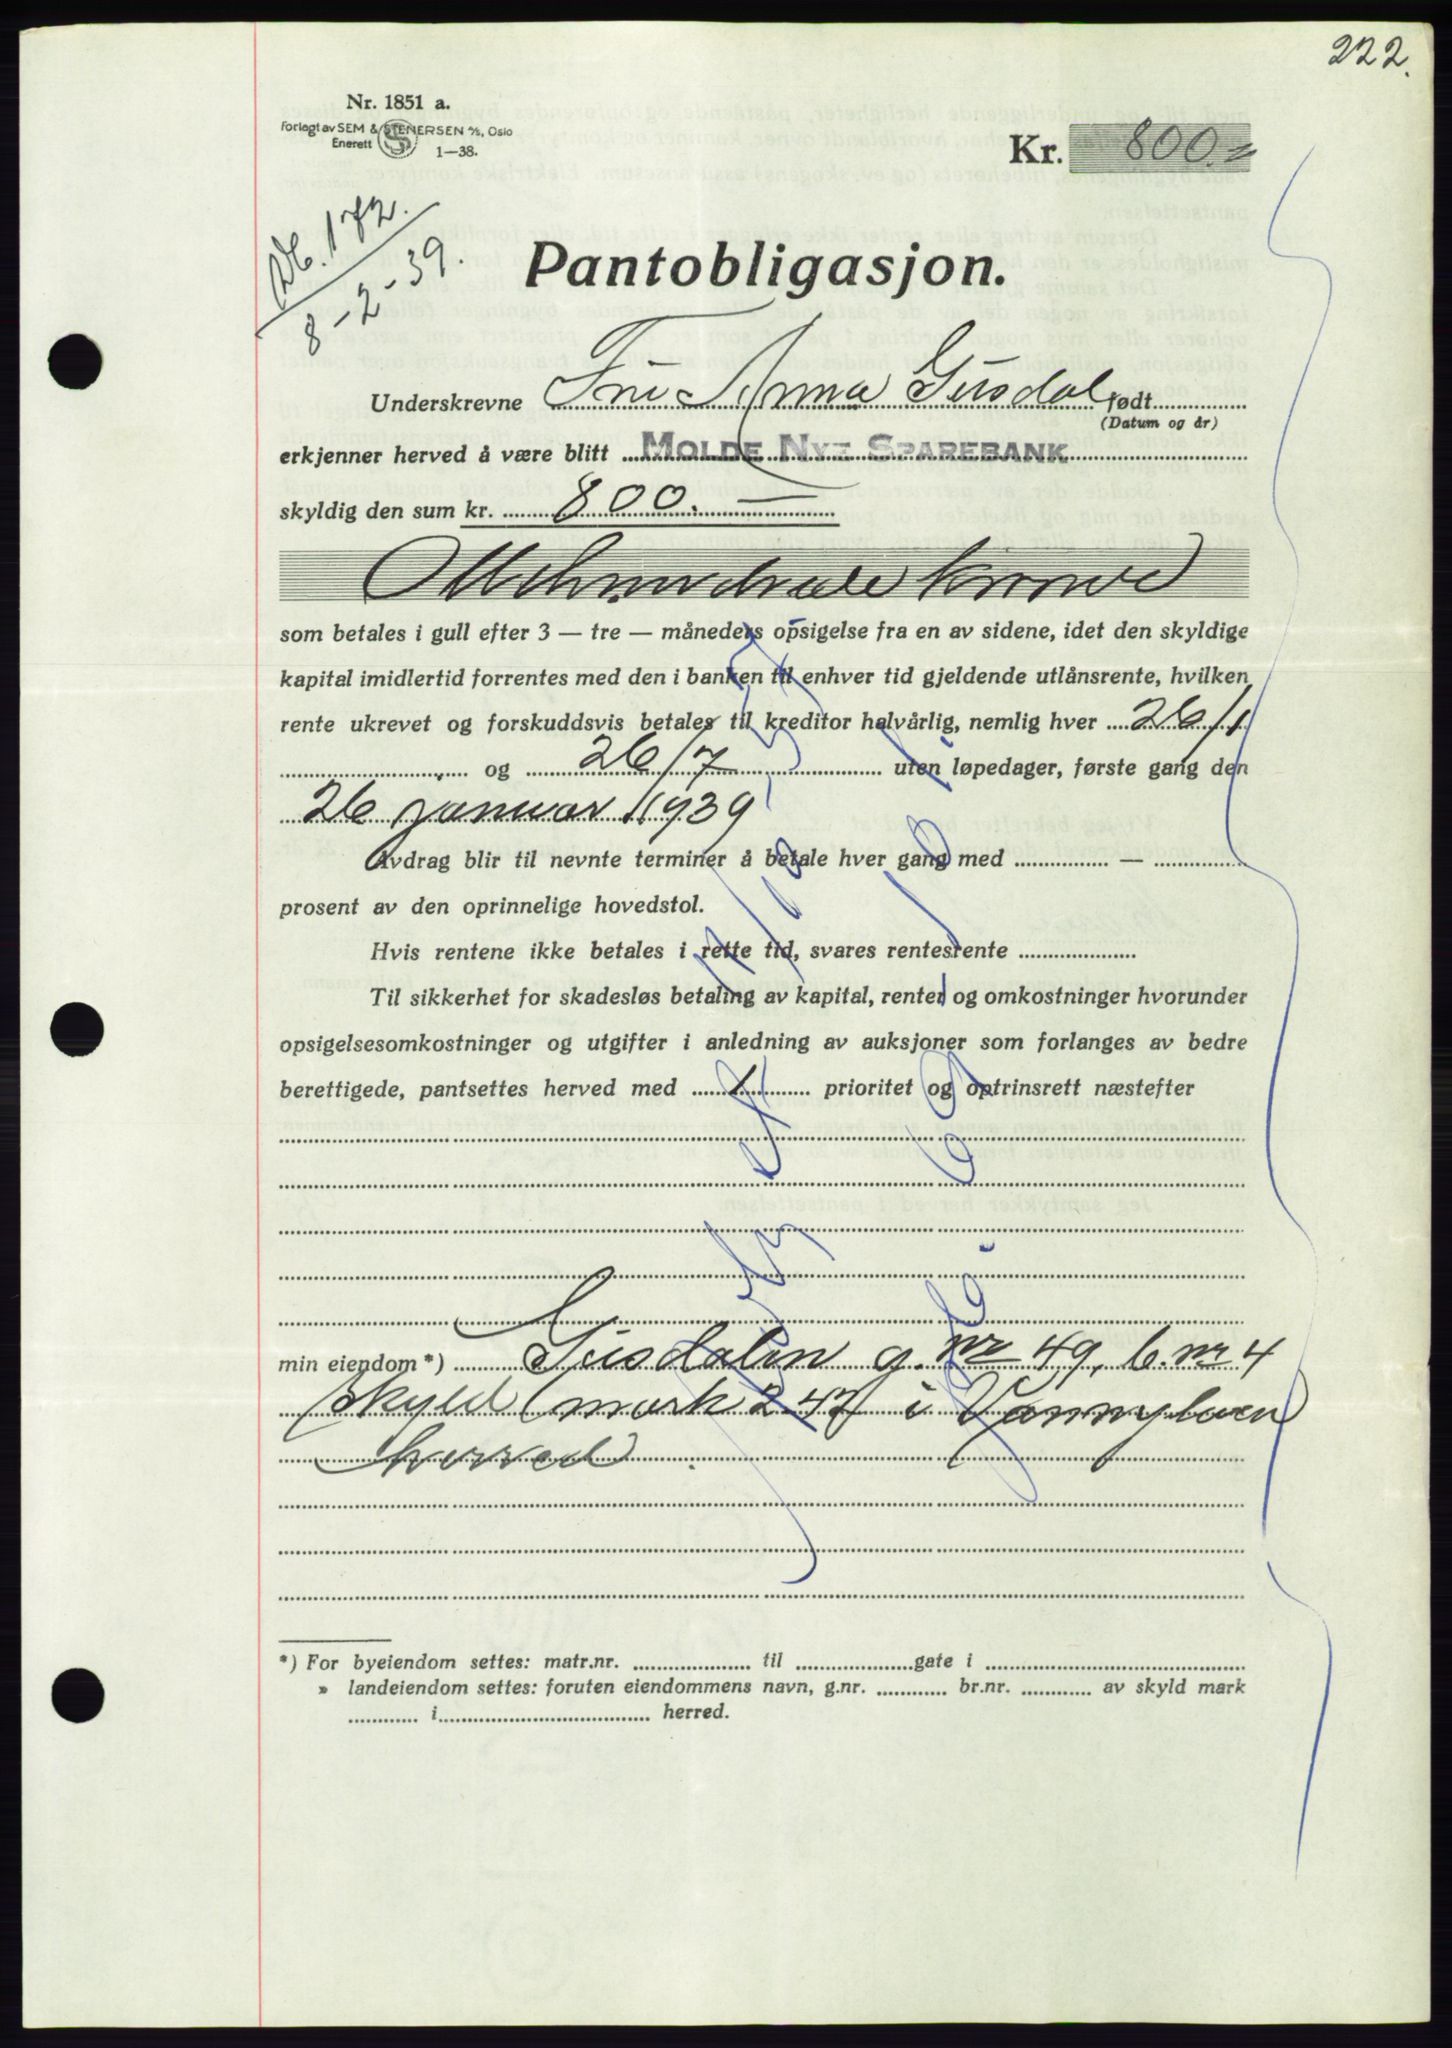 222.
Nr. 1851 a.
Forlagt av SEM & STENERSEN A/S, Oslo
Enerett
1—38.
Kr. 800.=
172.
8-2-39.
Pantobligasjon.
Underskrevne Fru Anna Gusdal født
(Datum og år)
erkjenner herved å være blitt MOLDE NYE SPAREBANK
skyldig den sum kr. 800.—
Ottehundrede kroner
som betales i gull efter 3 — tre — måneders opsigelse fra en av sidene, idet den skyldige
kapital imidlertid forrentes med den i banken til enhver tid gjeldende utlånsrente, hvilken
rente ukrevet og forskuddsvis betales til kreditor halvårlig, nemlig hver 26/1
og 26/7 uten løpedager, første gang den
26 januar 1939
Avdrag blir til nevnte terminer å betale hver gang med —
prosent av den oprinnelige hovedstol.
Hvis rentene ikke betales i rette tid, svares rentesrente
Til sikkerhet for skadesløs betaling av kapital, renter og omkostninger hvorunder
opsigelsesomkostninger og utgifter i anledning av auksjoner som forlanges av bedre
berettigede, pantsettes herved med 1 prioritet og optrinsrett næstefter
min eiendom *) Gusdalen g. nr 49, b. nr 4
skyld mark 2.47 i Vannylven
herred
*) For byeiendom settes: matr.nr. til gate i
» landeiendom settes: foruten eiendommens navn, g.nr. br.nr. av skyld mark
i herred.